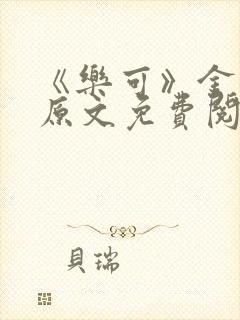 《樂可》全
原文免費閱
貝瑞